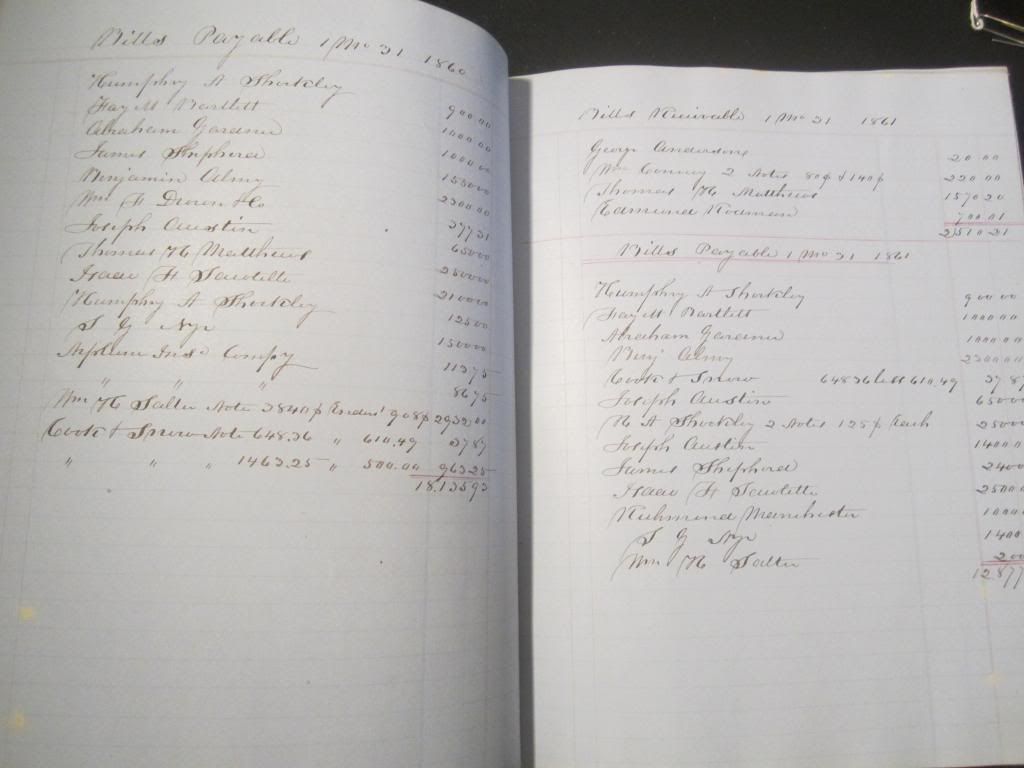 Bills Payable 1 Mo 31 1860
Humphry A Shorkley 900 00
Fay M Bartlett 1000 00
Abraham Gardner 1000 00
James Shepherd
Benjamin Almy 2300 00
Wm H
Joseph Austin 650 00
Thomas H Matthews 2500 00
Isaac H Sawtelle
Humphry A Shorkley 125 00
S G Nye 1500 00
Neptune Insce Compy 113 75
" " " 86 75
Wm H Salter Note 3840$ 908$ 2932.00
Cook & Snow Note 648.36 " 610.49 37 87
" " " 1463.25 " 500.00 963 25
18.135 93
Bills Receivable 1 Mo 31 1861
George Anderson 20 00
Wm 2 Notes 80$ & 140$ 220 00
Thomas H Matthews 1570 20
Edmund 700 01
2510 21
Bills Payable 1 Mo 31 1861
Humphry A Shorkley 900 00
Fay M Bartlett 1000 00
Abraham Gardner 1000 00
Benj Almy 2300 00
Cook & Snow 648 36 less 610.49 37 87
Joseph Austin 650 00
H A Shorkley 2 Notes 125$ Each 250 00
Joseph Austin 1400
James Shepherd 2400
Isaac H Sawtelle 2500
Richmond Manchester 1000
S G Nye 1400
Wm H Salter 200
12877